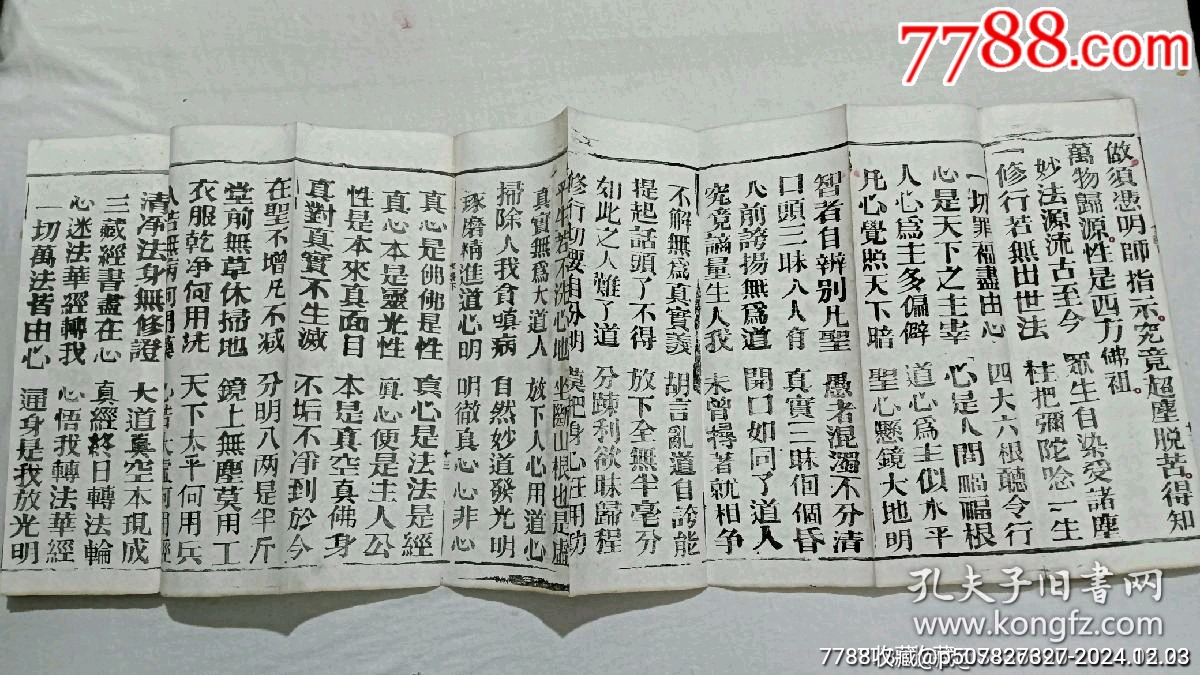 7788.com
做須憑明師指示究竟超塵脱苦得知
萬物歸源性是西方佛祖
妙法源流古至今 眾生自染愛諸塵
修行若無出世法 枉把彌陀唸一生
一切罪福盡由心 四大六根聽令行
心是天下之主宰 心是人間禍福根
人心爲主多偏僻 道心爲主似水平
凡心覺照天下暗 聖心懸鏡大地明
智者自辨别凡聖 愚者混濁不分清
口頭三昧人人有 真實三昧個個昏
人前誇揚無爲道 開口如同了道人
究竟論量生人我 未曾擣著就相争
不解無爲真實義 胡言亂道自誇能
提起話頭了不得 放下全無半毫分
如此之人難了道 分踈利欲昧歸程
修行切要自分明 莫把身心任用功
平生若不洗心地 坐斷山根也是虚
真實無爲大道人 放下人心用道心
掃除人我貪嗔病 自然妙道發光明
琢磨精進道心明 明徹真心心非心
真心是佛佛是性 真心是法法是經
真心本是靈光性 真心便是主人公
性是本來真面目 本是真空真佛身
真對真實不生滅 不垢不净到於今
在聖不增凡不减 分明八两是半斤
堂前無草休掃地 鏡上無塵莫用工
衣服乾净何用洗 天下太平何用兵
人若無病何用藥
清净法身無修證 大道真空本現成
三藏經書盡在心 真經終日轉法輪
心迷法華經轉我 心悟我轉法華經
一切萬法皆由心 通身是我放光明
孔夫子旧书网
www.kongfz.com
7788收藏@p507827327-2024.12.03